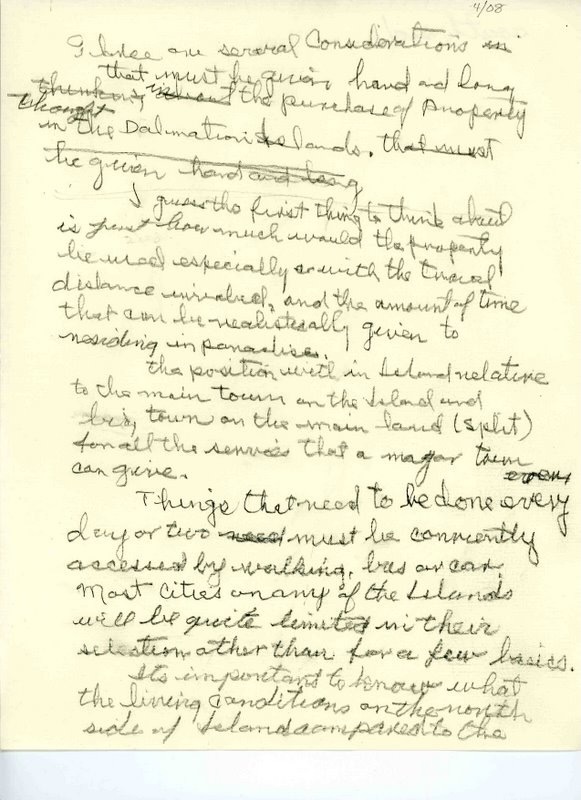 4/08
There are several Considerations in
that must be given hard and long
thinking about the purchase of Property
thought
in the Dalmation Islands. that must
be given hard and long
I guess the first thing to think about
is just how much would the property
be used especially with the travel
distance involved, and the amount of time
that can be realistically given to
residing in paradise.
the position with in Island relative
to the main town on the Island and
big town on the main land (Split)
for all the services that a major town
can give. even
Things that need to be done every
day or two need must be conviently
accessed by walking, bus or car.
Most Cities on any of the Islands
will be quite limited in their
selection other than for a few basics.
Its important to know what
the living conditions on the north
side of Island compared to the